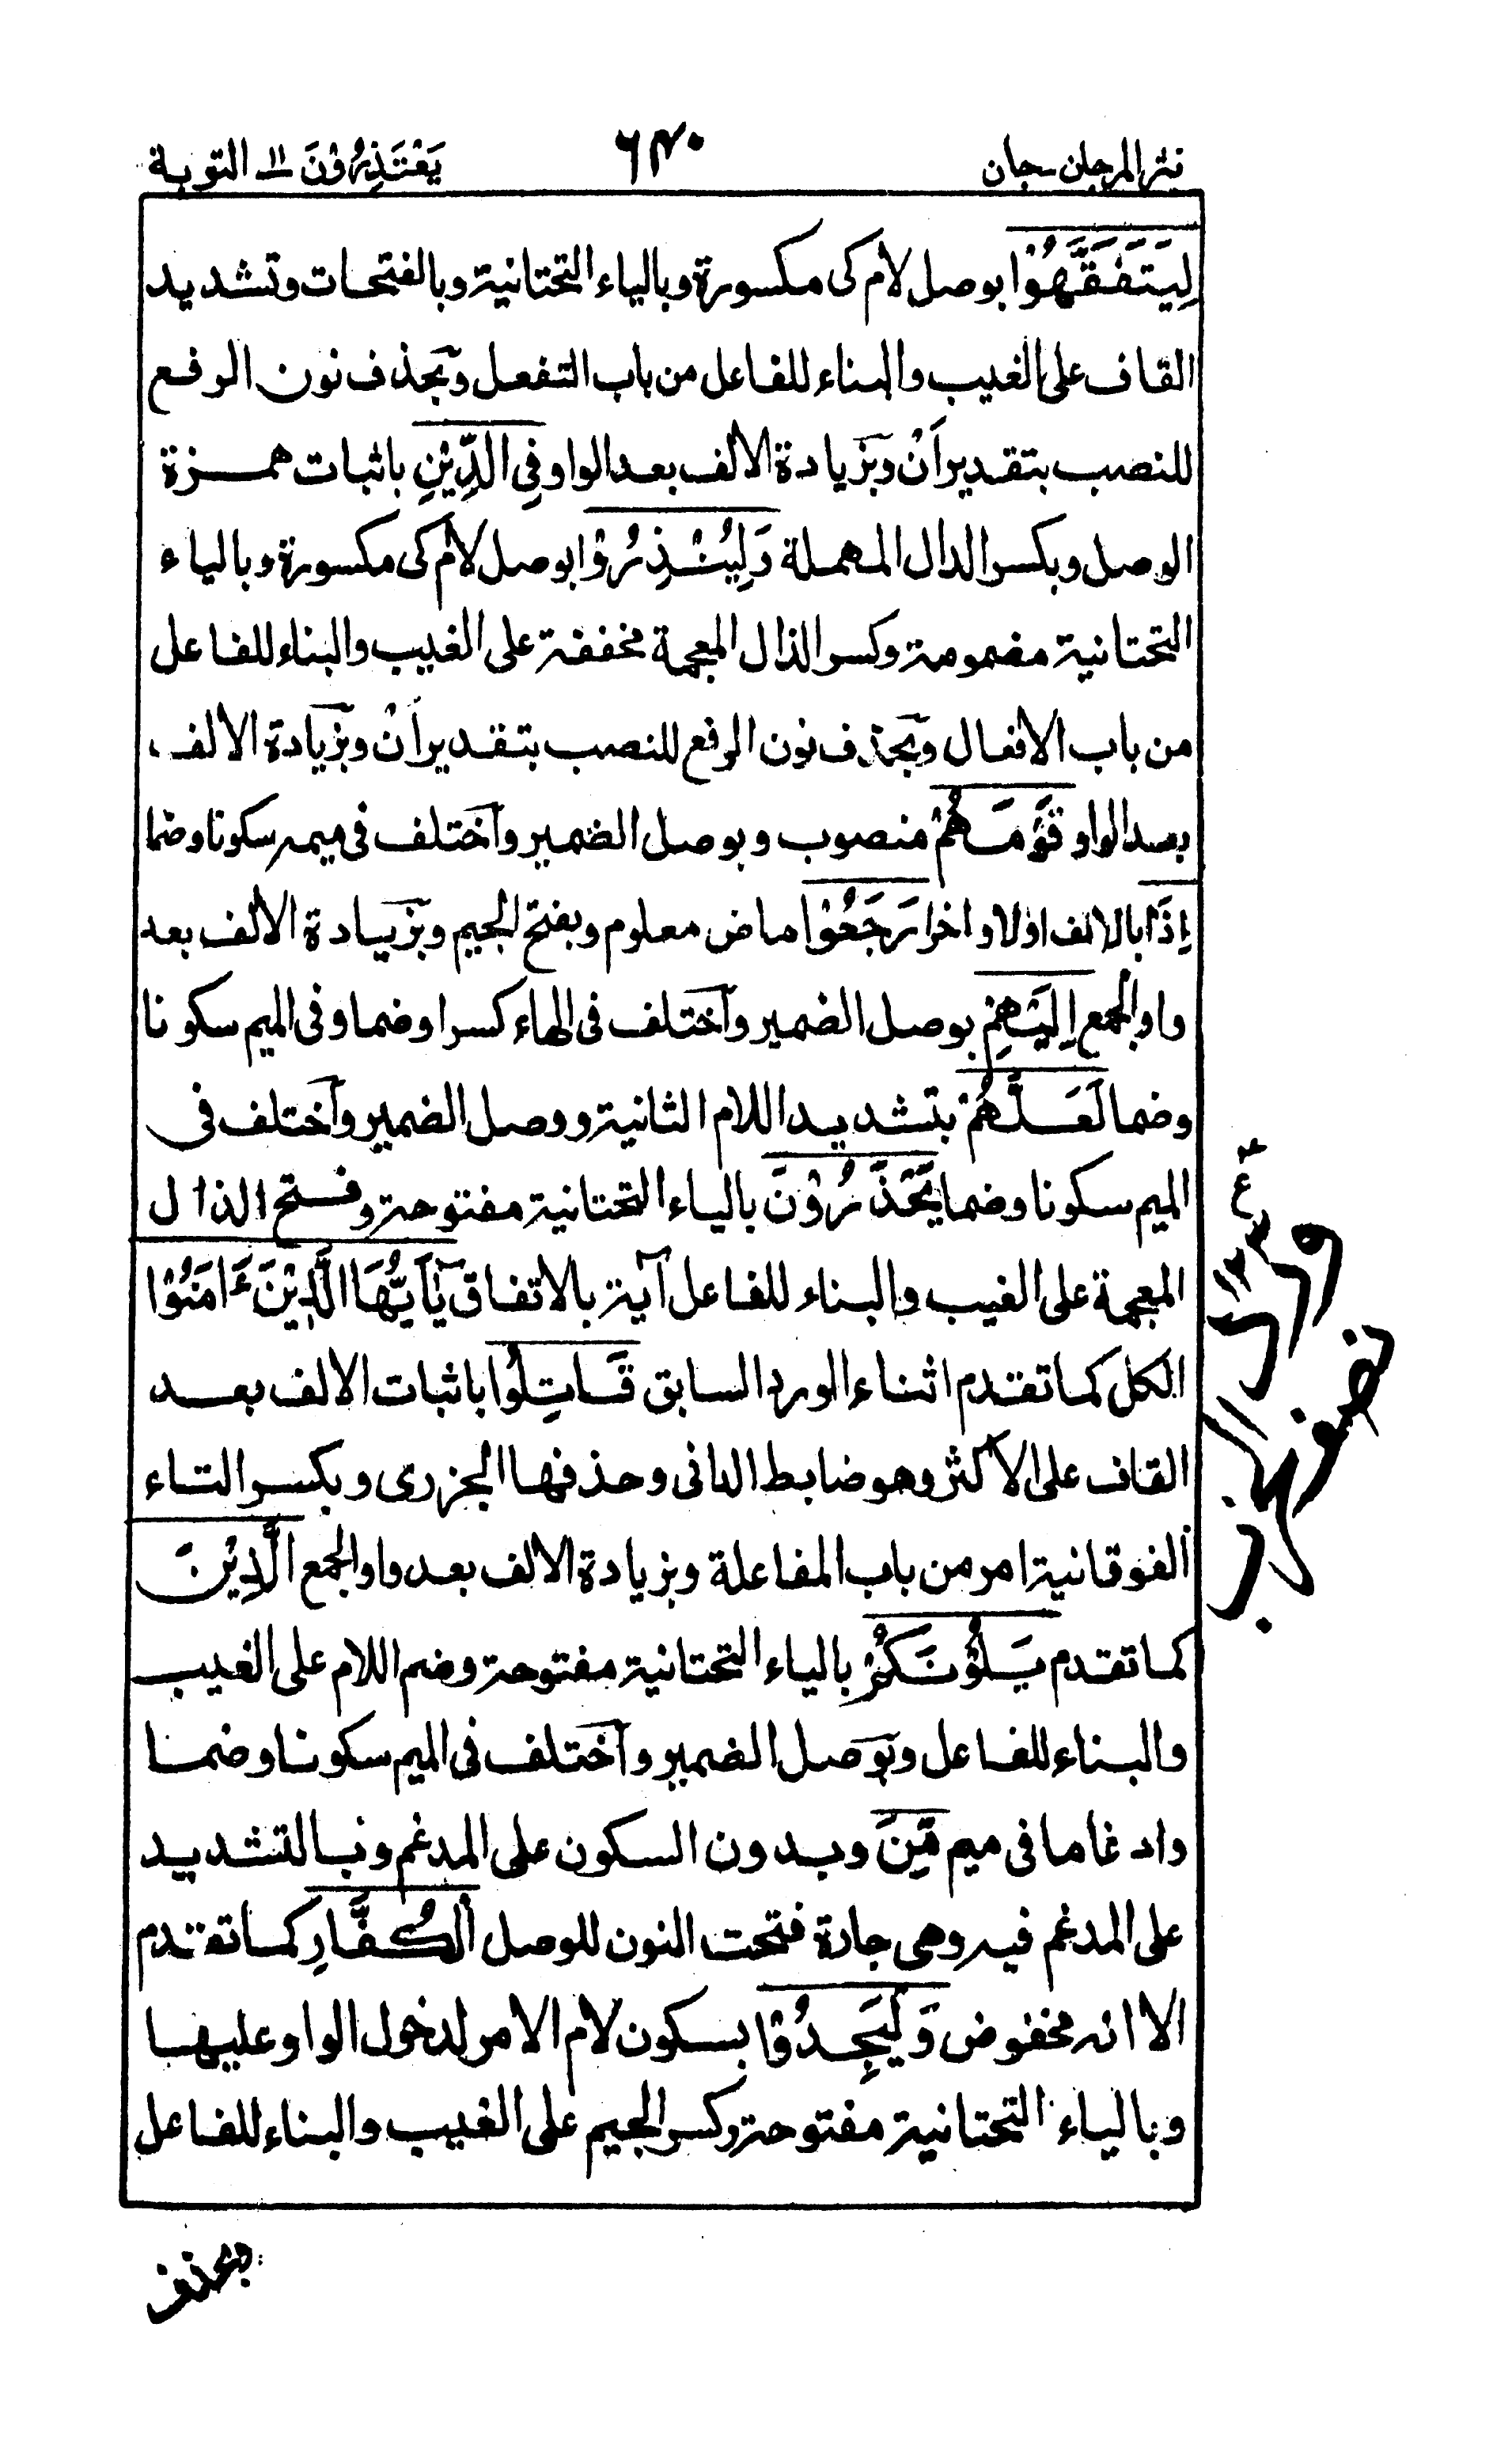 نثر المرجان - جان
٦٤٠
يَعْتَذِرُوْنَ ١١ التوبة
لِيَتَفَقَّهُوْا بوصل لام كى مكسورة وبالياء التحتانية وبالفتحات وتشديد
القاف على الغيب والبناء للفاعل من باب التفعل وبحذف نون الرفع
للنصب بتقدير اَنْ وبزيادة الالف بعد الواو فِي الدِّيْنِ باثبات همزة
الوصل وبكسر الدال المهملة وَلِيُنْذِرُوْا بوصل لام كى مكسورة وبالياء
التحتانية مضمومة وكسر الذال المعجمة مخففة على الغيب والبناء للفاعل
من باب الافعال وبحذف نون الرفع للنصب بتقدير اَنْ وبزيادة الالف
بعد الواو قَوْمَهُمْ منصوب وبوصل الضمير واختلف فى ميمه سكونا وضما
اِذَا بالالف اولا واخرا رَجَعُوْا ماض معلوم وبفتح الجيم وبزيادة الالف بعد
واو الجمع اِلَيْهِمْ بوصل الضمير واختلف فى الهاء كسرا وضما وفى الميم سكونا
وضما لَعَلَّهُمْ بتشديد اللام الثانية ووصل الضمير واختلف فى
الميم سكونا وضما يَحْذَرُوْنَ بالياء التحتانية مفتوحة وفتح الذال
المعجمة على الغيب والبناء للفاعل آية بالاتفاق يٰٓاَيُّهَا الَّذِيْنَ ءَامَنُوْا
الكل كما تقدم اثناء الورد السابق قَاتِلُوا باثبات الالف بعد
القاف على الاكثر وهو ضابط الدانى وحذفها الجزرى وبكسر التاء
الفوقانية امر من باب المفاعلة وبزيادة الالف بعد واو الجمع الَّذِيْنَ
كما تقدم يَلُوْنَكُمْ بالياء التحتانية مفتوحة وضم اللام على الغيب
والبناء للفاعل وبوصل الضمير واختلف فى الميم سكونا وضما
وادغاما فى ميم مِّنَ وبدون السكون على المدغم وبالتشديد
على المدغم فيه وهى جارة فتحت النون للوصل الْكُفَّارِ كما تقدم
الا انه مخفوض وَلْيَجِدُوْا بسكون لام الامر لدخول الواو عليها
وبالياء التحتانية مفتوحة وكسر الجيم على الغيب والبناء للفاعل
ع
بحذف